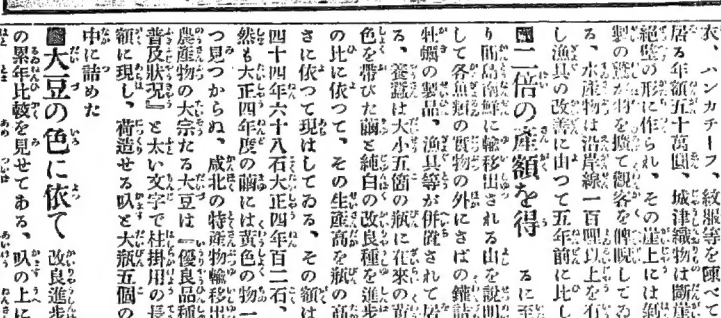 衣、ハンカチーフ、紋服等を陳べて
居る年額五十萬圓、城津織物は斷崖
絕壁の形に作られ、その崖上には剝
製の鷲が物を攫て觀客を睥睨してゐ
る、水産物は沿岸線一百哩以上を有
し漁具の改善に由つて五年前に比し
二倍の産額を得 るに至
り間島南鮮に輸移出される由を說明
して各魚類の實物の外にさばの鑵詰
牡蠣の製品、漁具等が併置されて居
る、養蠶は大小五箇の瓶に在來の黃
色を帶びた繭と純白の改良種を進步
の比に依つて、その生産高を瓶の高
さに依つて現はしてゐる、その額は
四十四年六十八石大正四年百二石、
然も大正四年度の繭には黃色の物一
つ見つからぬ、咸北の特産物輸移出
農産物の大宗たる大豆は『優良品種
普及狀況』と太い文字で柱掛用の長
額に現し、荷造せる叺と大瓶五個の
中に詰めた
大豆の色に依て 改良進步
の累年比較を見せてある、叺の上に